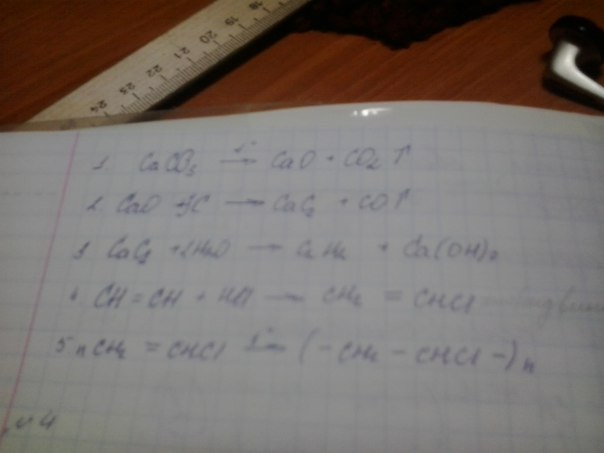 24 23 22 21 20 19 18
1. CaCO₃ →(t°) CaO + CO₂↑
2. CaO + 3C → CaC₂ + CO↑
3. CaC₂ + 2H₂O → C₂H₂ + Ca(OH)₂
4. CH ≡ CH + HCl → CH₂ = CHCl
5. nCH₂ = CHCl → (-CH₂ - CHCl-)n
№4